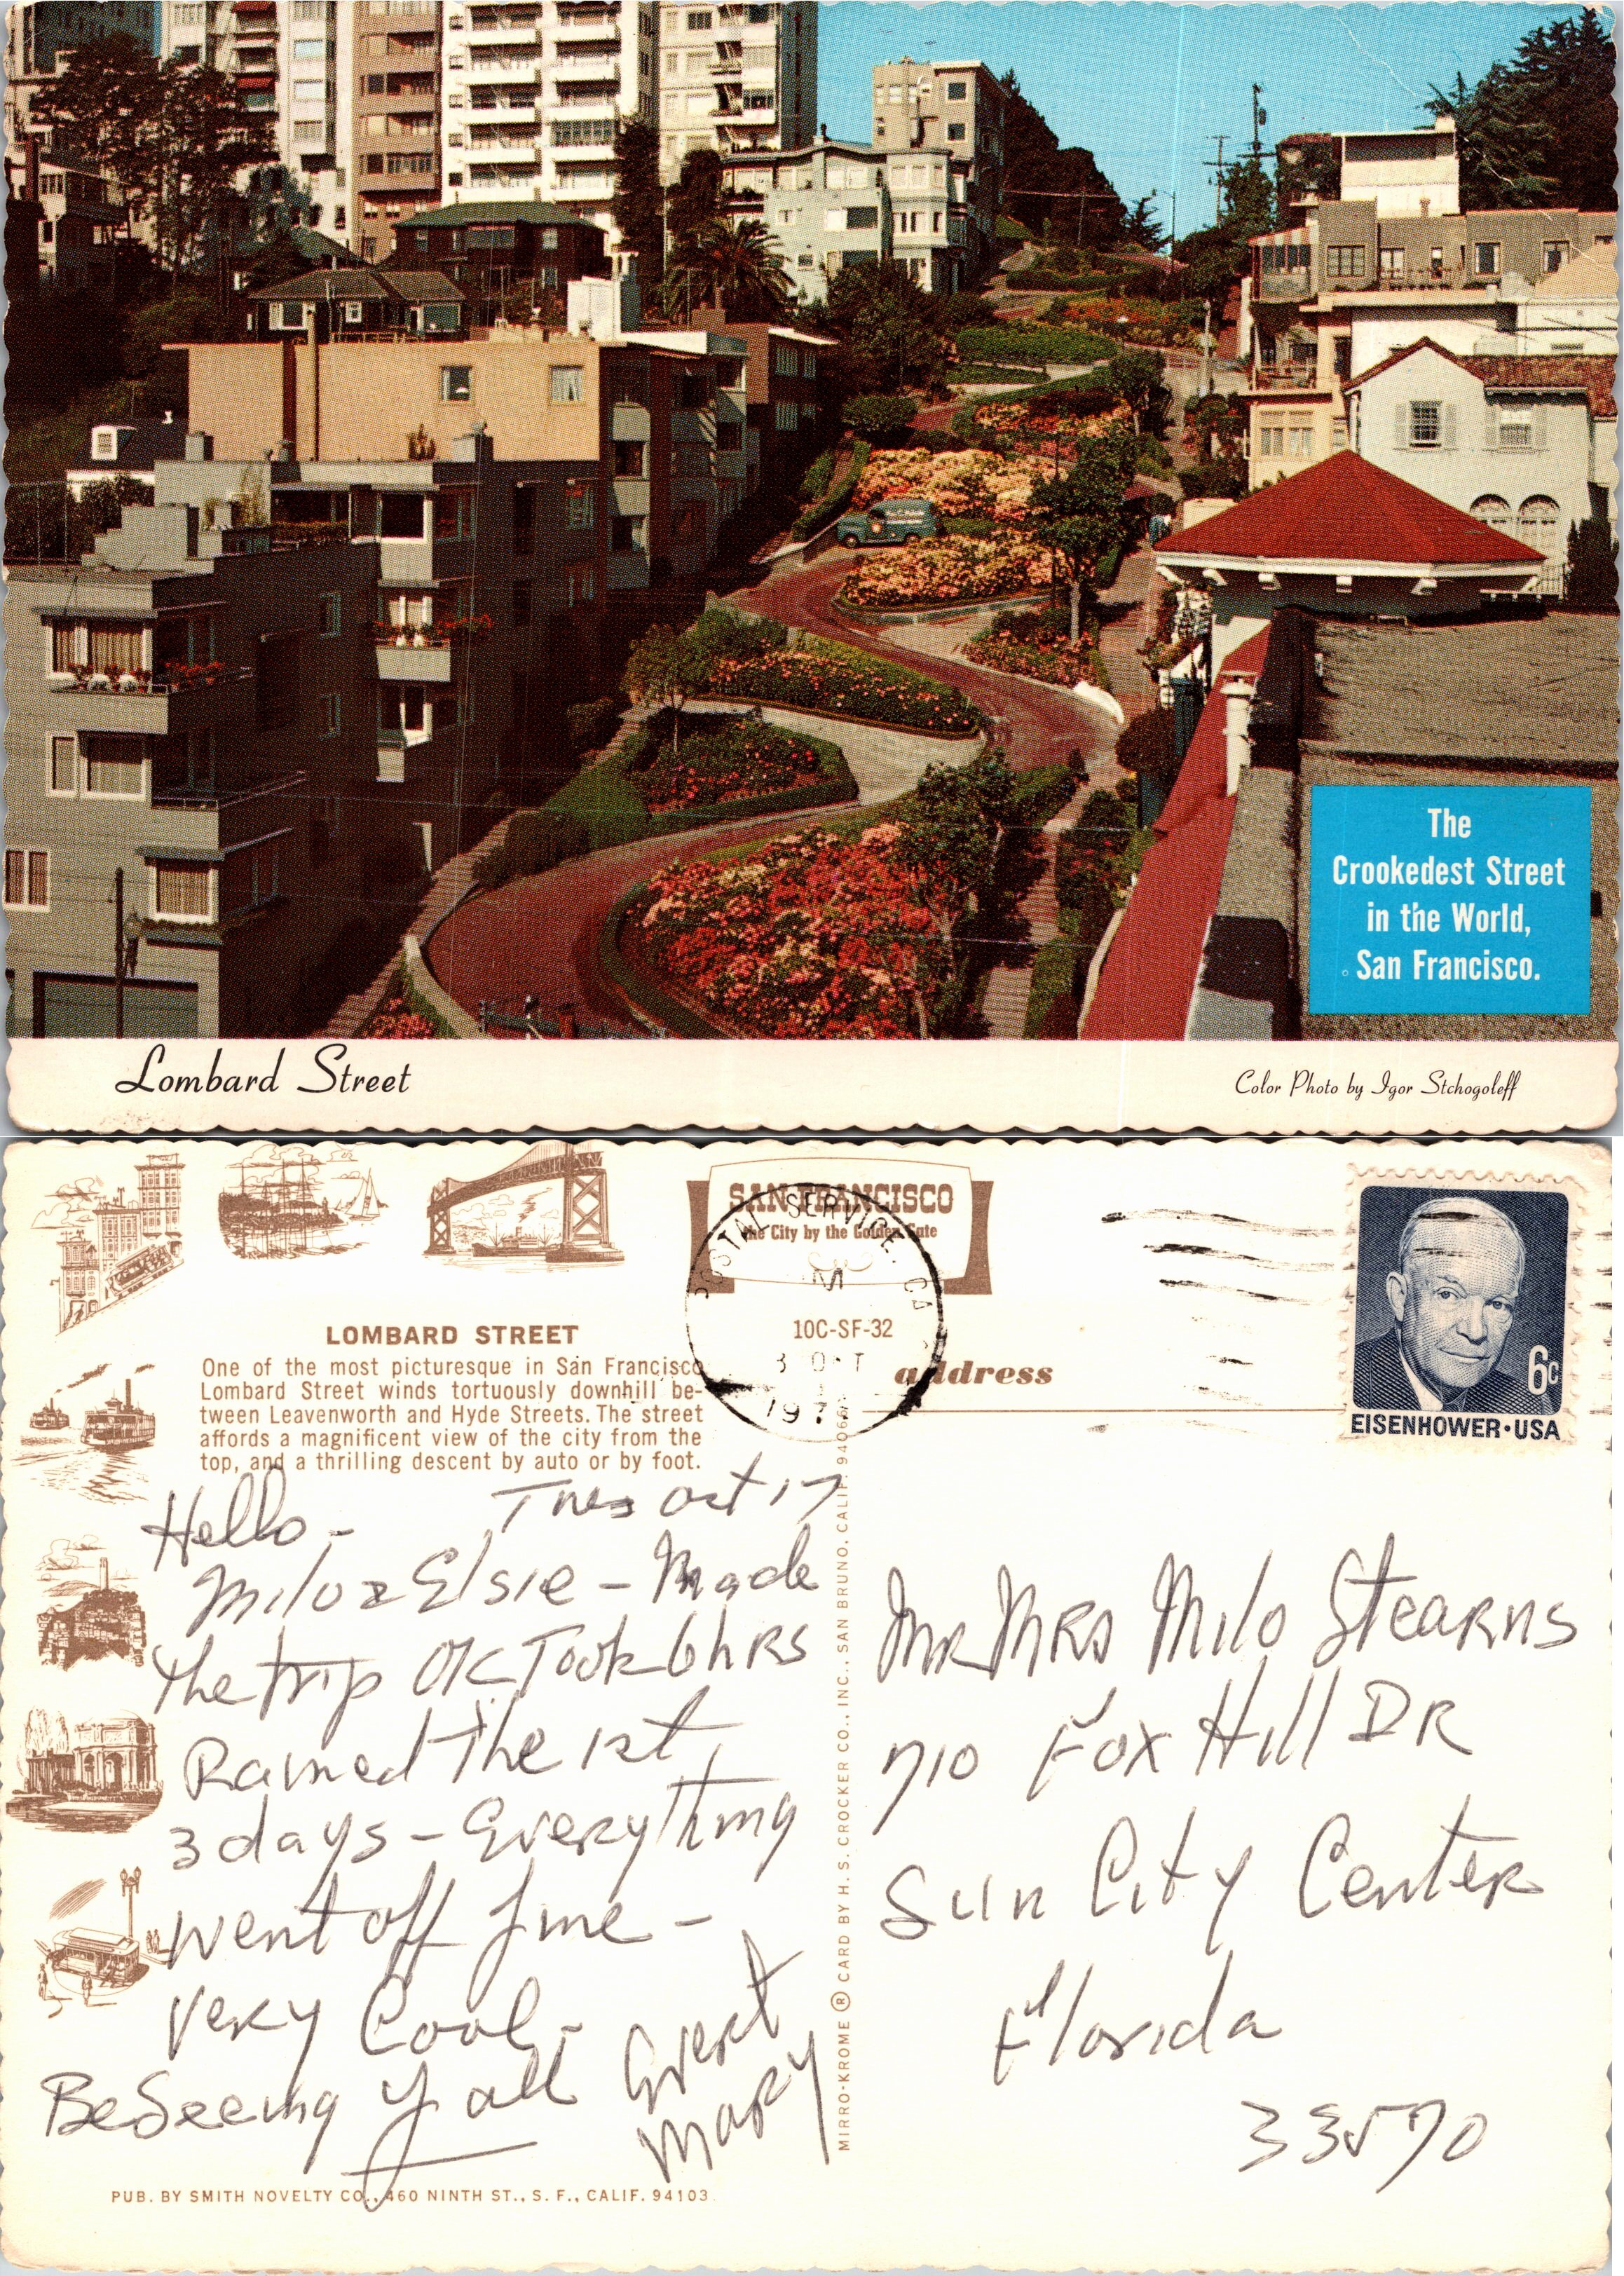 The
Crookedest Street
in the World,
San Francisco.
Lombard Street
Color Photo by Igor Stchogoleff
SAN FRANCISCO
the City by the Golden Gate
POSTAL SERVICE CA
10C-SF-32
OCT
6c
EISENHOWER·USA
LOMBARD STREET
One of the most picturesque in San Francisco
Lombard Street winds tortuously downhill be-
tween Leavenworth and Hyde Streets. The street
affords a magnificent view of the city from the
top, and a thrilling descent by auto or by foot.
address
Hello - Tues Oct 17
Milo & Elsie - Made
the trip OK Took 6 hRS
Rained the 1st
3 days - Everything
went off fine -
Very Cool -
Be Seeing y all
Evert
Mary
PUB. BY SMITH NOVELTY CO., 460 NINTH ST., S. F., CALIF. 94103
MIRRO-KROME ® CARD BY H. S. CROCKER CO., INC., SAN BRUNO, CALIF. 94066
Mr MRS Milo Stearns
710 Fox Hill DR
Sun City Center
Florida
33570